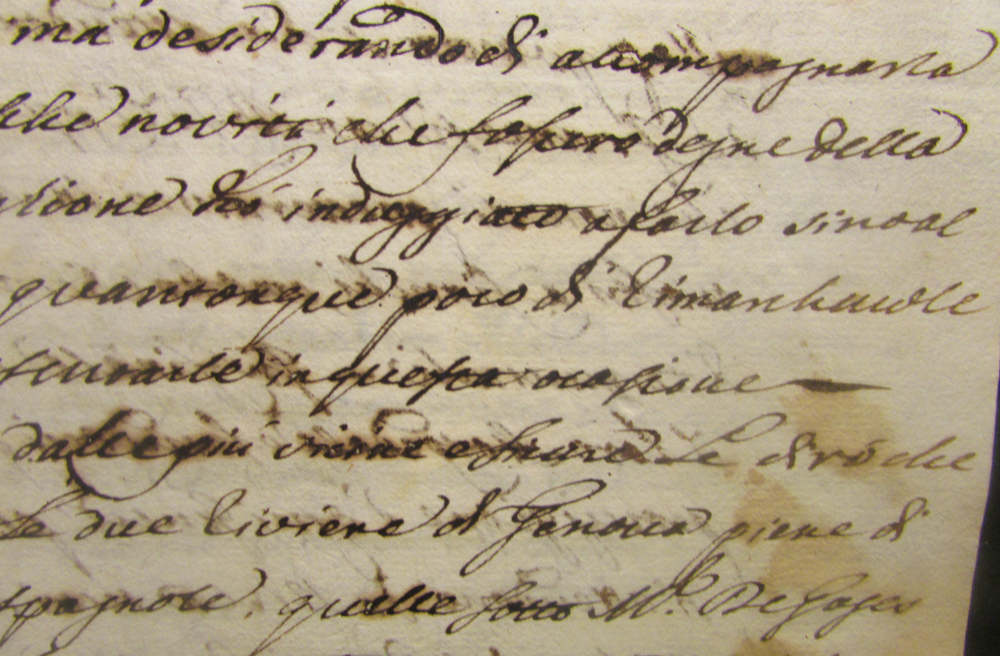 ma desiderando di accompagnarla
che novità che fossero degne della
azione hò indugiato a farlo sino al
quantonque poco di rimarcheuole
in questa ocasione
dalle più vicine e sicure Le dirò che
le due riviere di Genoua piene di
spagnole, quelle sotto Mr. De Gages